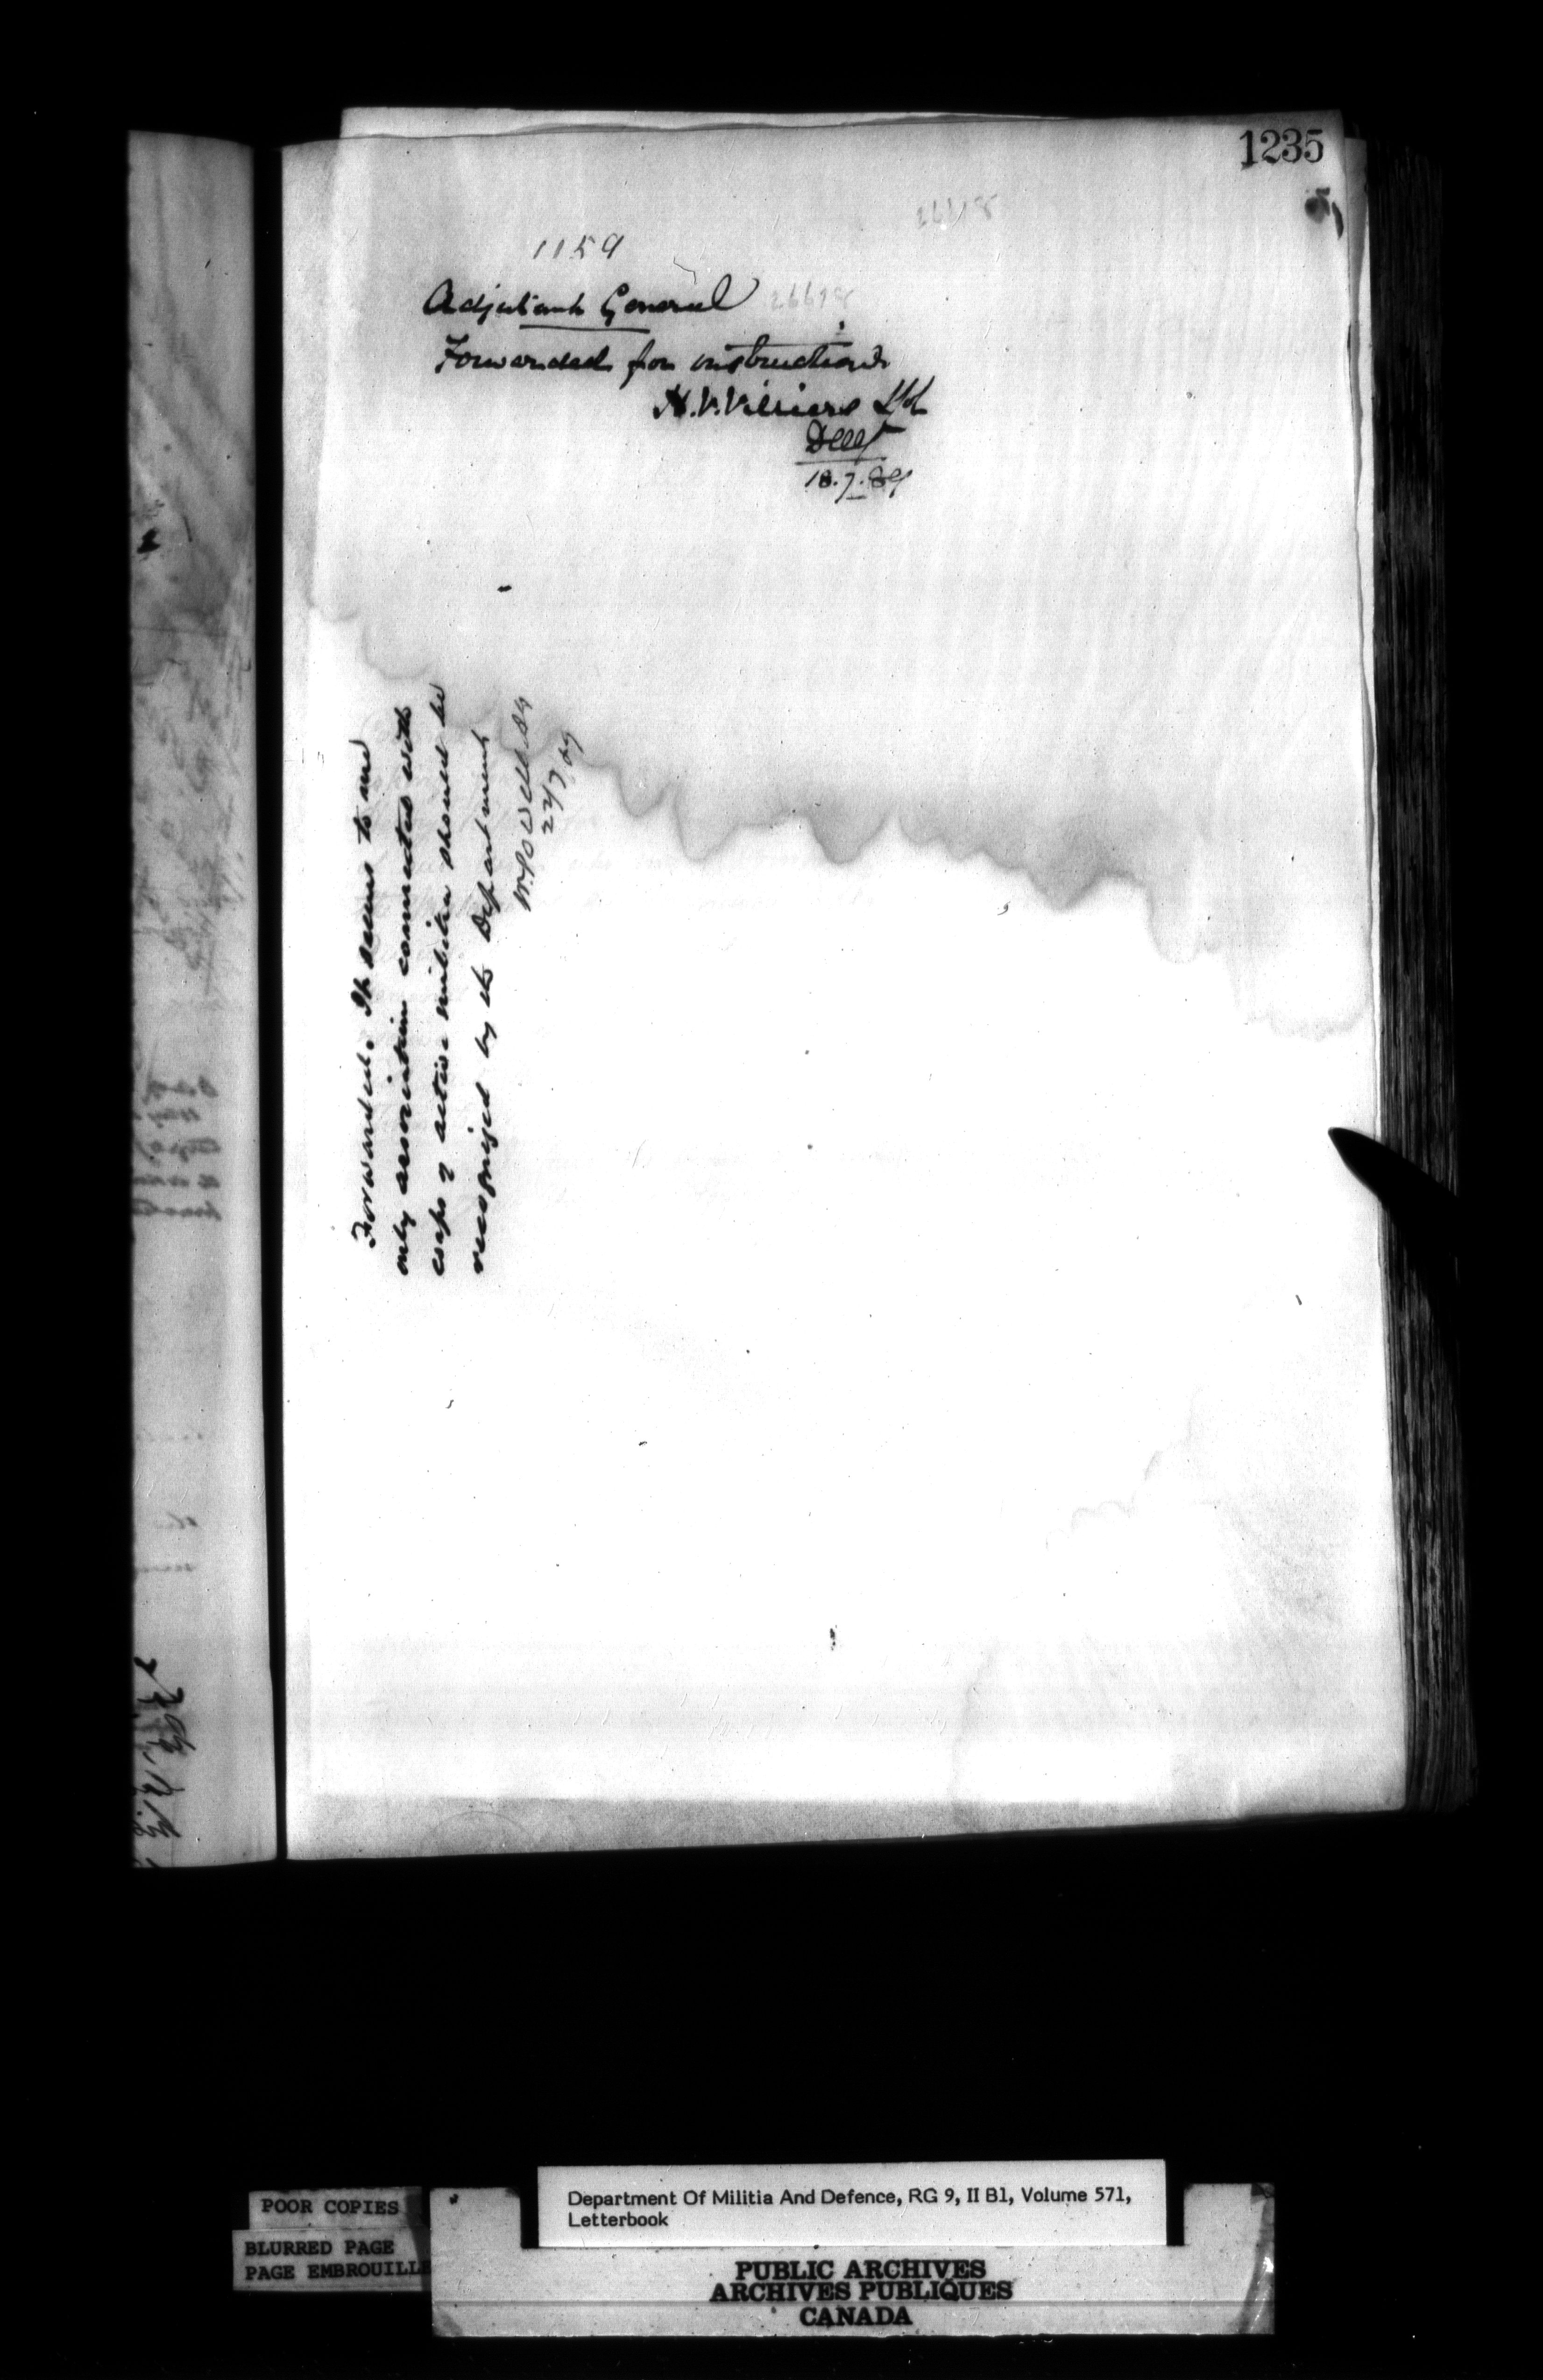 1235
26618
1159
Adjutant General 26618
Forwarded for instructions
H.V. Villiers Lt Col
DAG
18.7.89
Forwarded. It seems to me
only association connected with
corps of active militia should be
recognized by the Department
W. Powell A.G.
22/7/89
POOR COPIES
BLURRED PAGE
PAGE EMBROUILLE
Department Of Militia And Defence, RG 9, II B1, Volume 571,
Letterbook
PUBLIC ARCHIVES
ARCHIVES PUBLIQUES
CANADA